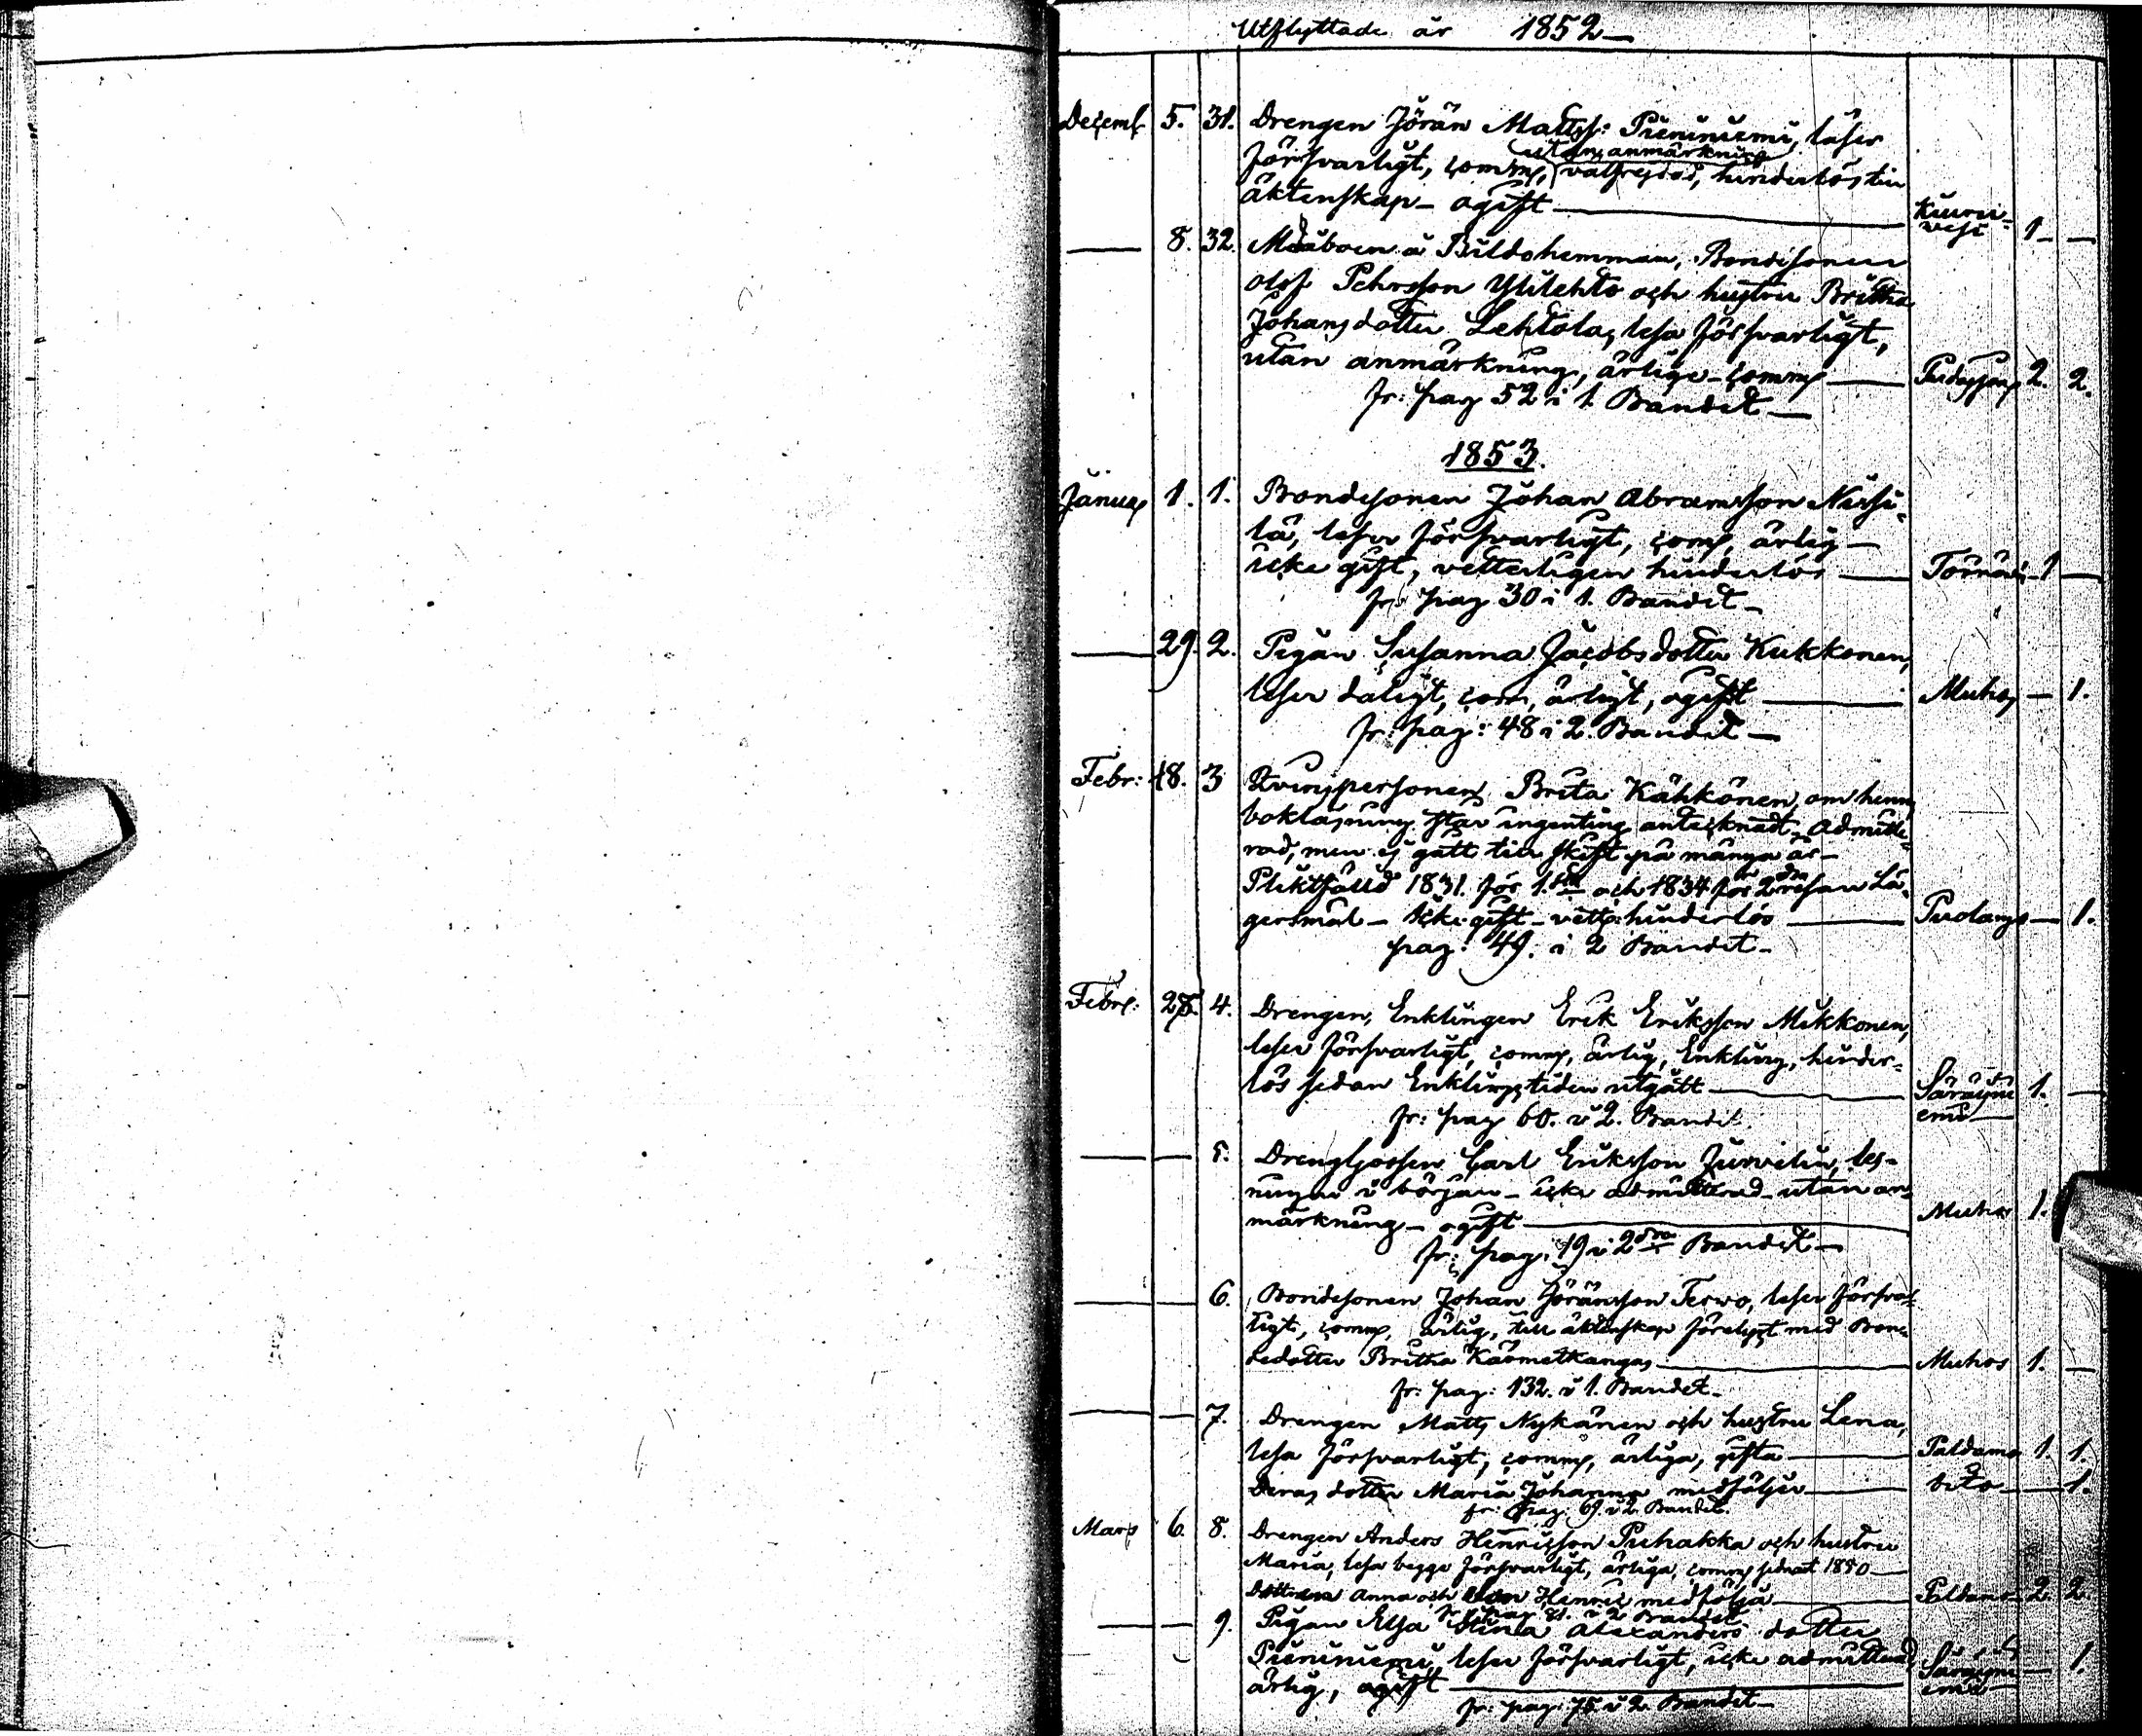 Utflyttade år 1852
Decemb. 5. 31. Drengen Jöran Matts: Pieniniemi, läser
utan anmärkning
försvarligt, comm, välfrejdad, hinderlös till
äktenskap - ogift
Kiuru-
vesi 1 -
8. 32. Måboen å Bildohemman, Bondesonen
Olof Pehrsson Ylilehto och hustru Britha
Johansdotter Lehtola, läsa försvarligt,
utan anmärkning, ärlige - comm 2. 2.
fr: pag 52 i 1. Bandet
1853.
Januar 1. 1. Bondesonen Johan Abramsson
läser försvarligt, comm, ärlig -
icke gift, vetterligen hinderlös Torneå 1 -
fr: pag 30 i 1. Bandet -
29. 2. Pigan Susanna Jacobsdotter Kukkonen,
läser dåligt, com, ärligt, ogift Muhos - 1.
fr: pag: 48 i 2. Bandet -
Febr: 18. 3 Qvinspersonen Brita Kähkönen, om henns
bokläsning står ingenting antecknadt, admitte-
rad, men ej gått till skrift på många år -
Pliktfälld 1831 för 1.sta och 1834 för 2dra resan Lä-
gersmål - Icke gift - hinderlös Puolango - 1.
pag: 49. i 2 Bandet -
Febr: 28. 4. Drengen, Enklingen Erik Eriksson Mikkonen,
läser försvarligt, comm, ärlig, Enkling, hinder-
lös sedan Enklingstiden utgått
Säräisni
emi 1. -
fr: pag 60. i 2. Bandet
5. Drenggossen Carl Eriksson Jurvelin, läs-
ningen i början - icke admitterad - utan an-
märkning - ogift Muhos 1.
fr: pag. 19 i 2dra Bandet -
6. Bondesonen Johan Jöransson Tervo, läser försvar-
ligt, comm, ärlig, till äktenskap förelyst med Bon-
dedotter Britha Karmetkangas Muhos 1. -
fr: pag: 132. i 1. Bandet -
7. Drengen Matts Nykänen och hustru Lena,
läsa försvarligt, comm, ärliga, gifta Paldamo 1. 1.
Deras dotter Maria Johanna medföljer dito - 1.
fr: pag. 69. i 2. Bandet.
Mars 6. 8. Drengen Anders Henricsson Puhakka och hustru
Maria, läsa begge försvarligt, ärliga, comm sednast 1850
Dottren Anna och Son Henric medfölja Paldamo 2. 2.
fr: pag i 2 Bandet
9. Pigan Elsa Stina Alexanders dotter
Pieniniemi, läser försvarligt, icke admitterad,
ärlig, ogift
Säräisni
emi - 1.
fr: pag: 75 i 2 Bandet -